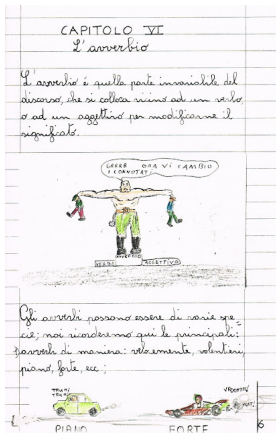 CAPITOLO VI
L'avverbio
L'avverbio é quella parte invariabile del
discorso, che si colloca vicino ad un verbo
o ad un aggettivo per modificarne il
significato.
GRRRR ORA VI CAMBIO
I CONNOTATI
AVVERBIO
VERBO AGGETTIVO
Gli avverbi possono essere di varie spe-
cie; noi ricorderemo qui le principali:
avverbi di maniera: velocemente, volentieri,
piano, forte, ecc;
PIANO FORTE
6